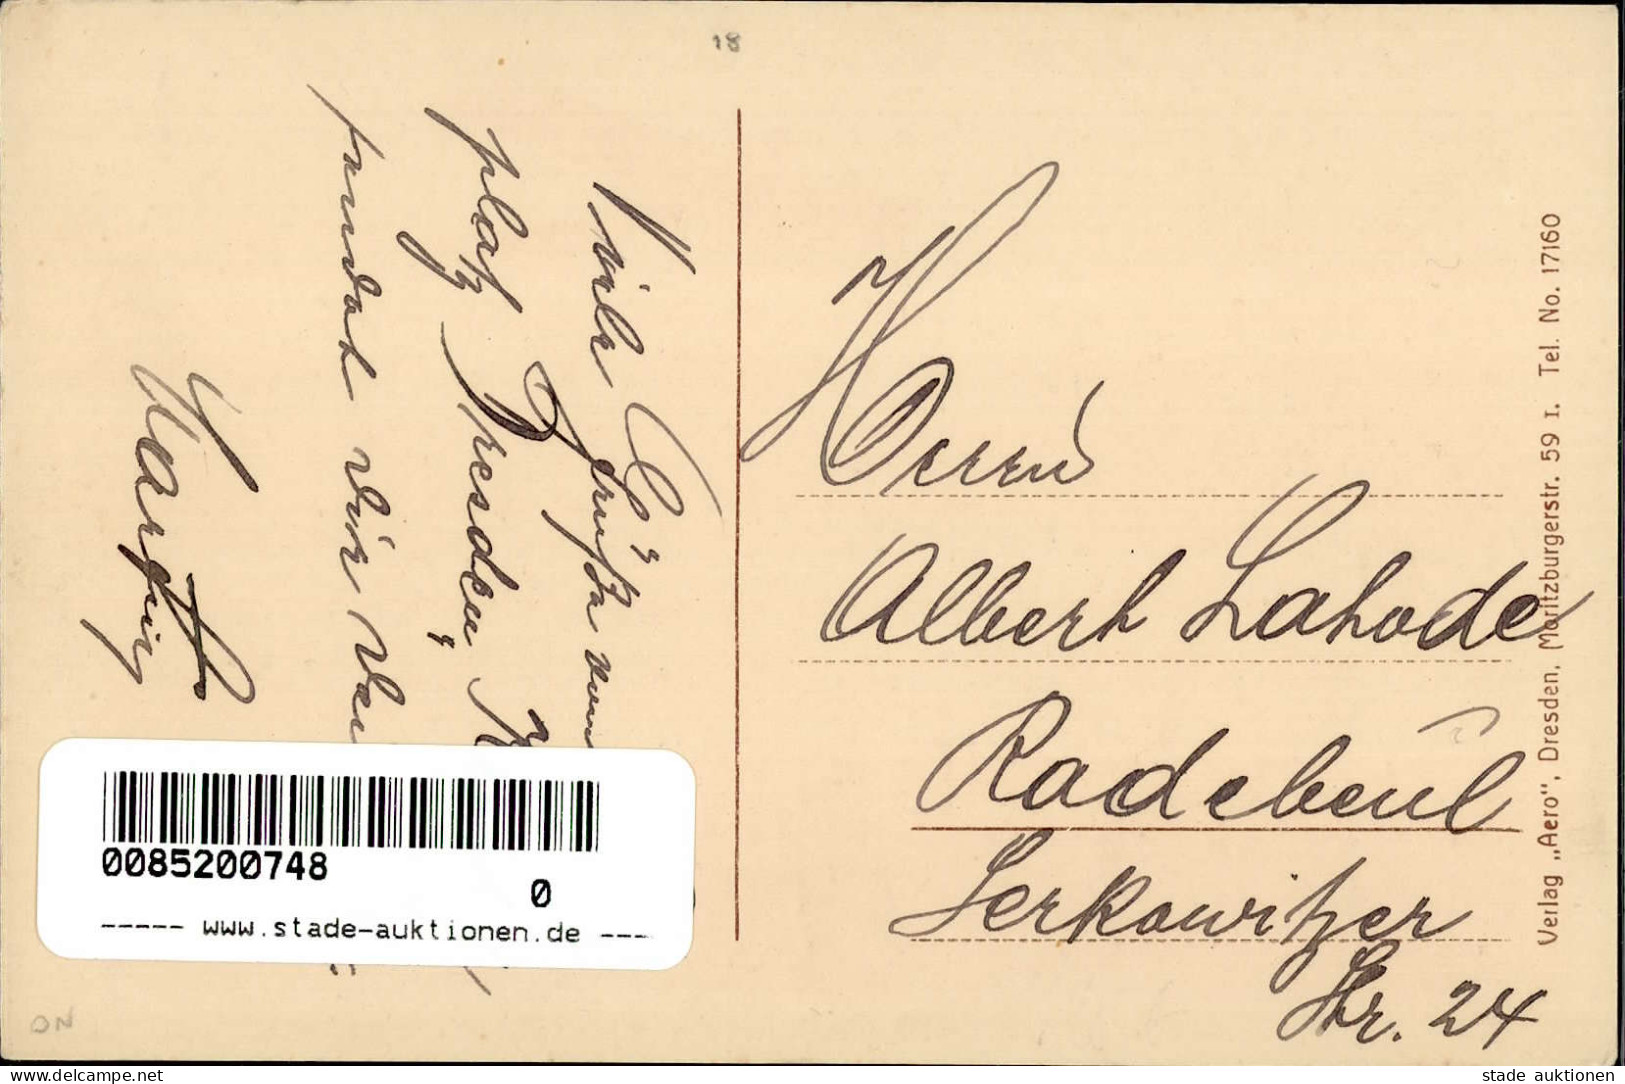 18
Viele Grüße vom
platz Dresden, K
sendet Dir Dei
Herrn
Albert Lahode
Radebeul
Serkowitzer
Str. 24
Verlag „Aero“, Dresden, Moritzburgerstr. 59 I. Tel. No. 17160
0085200748
0
----- www.stade-auktionen.de ---
ON
www.delcampe.net
stade auktionen